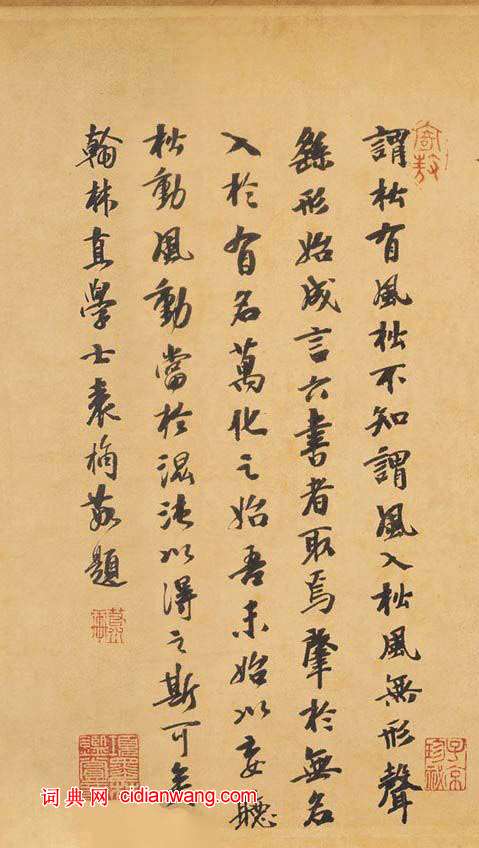 謂松有風松不知謂風入松風無形聲
繇形始成言六書者取焉肇於無名
入於有名萬化之始吾未始以妄聽
松動風動當於混沌以得之斯可矣
翰林直學士袁桷敬題
子京珍秘
词典网 cidianwang.com